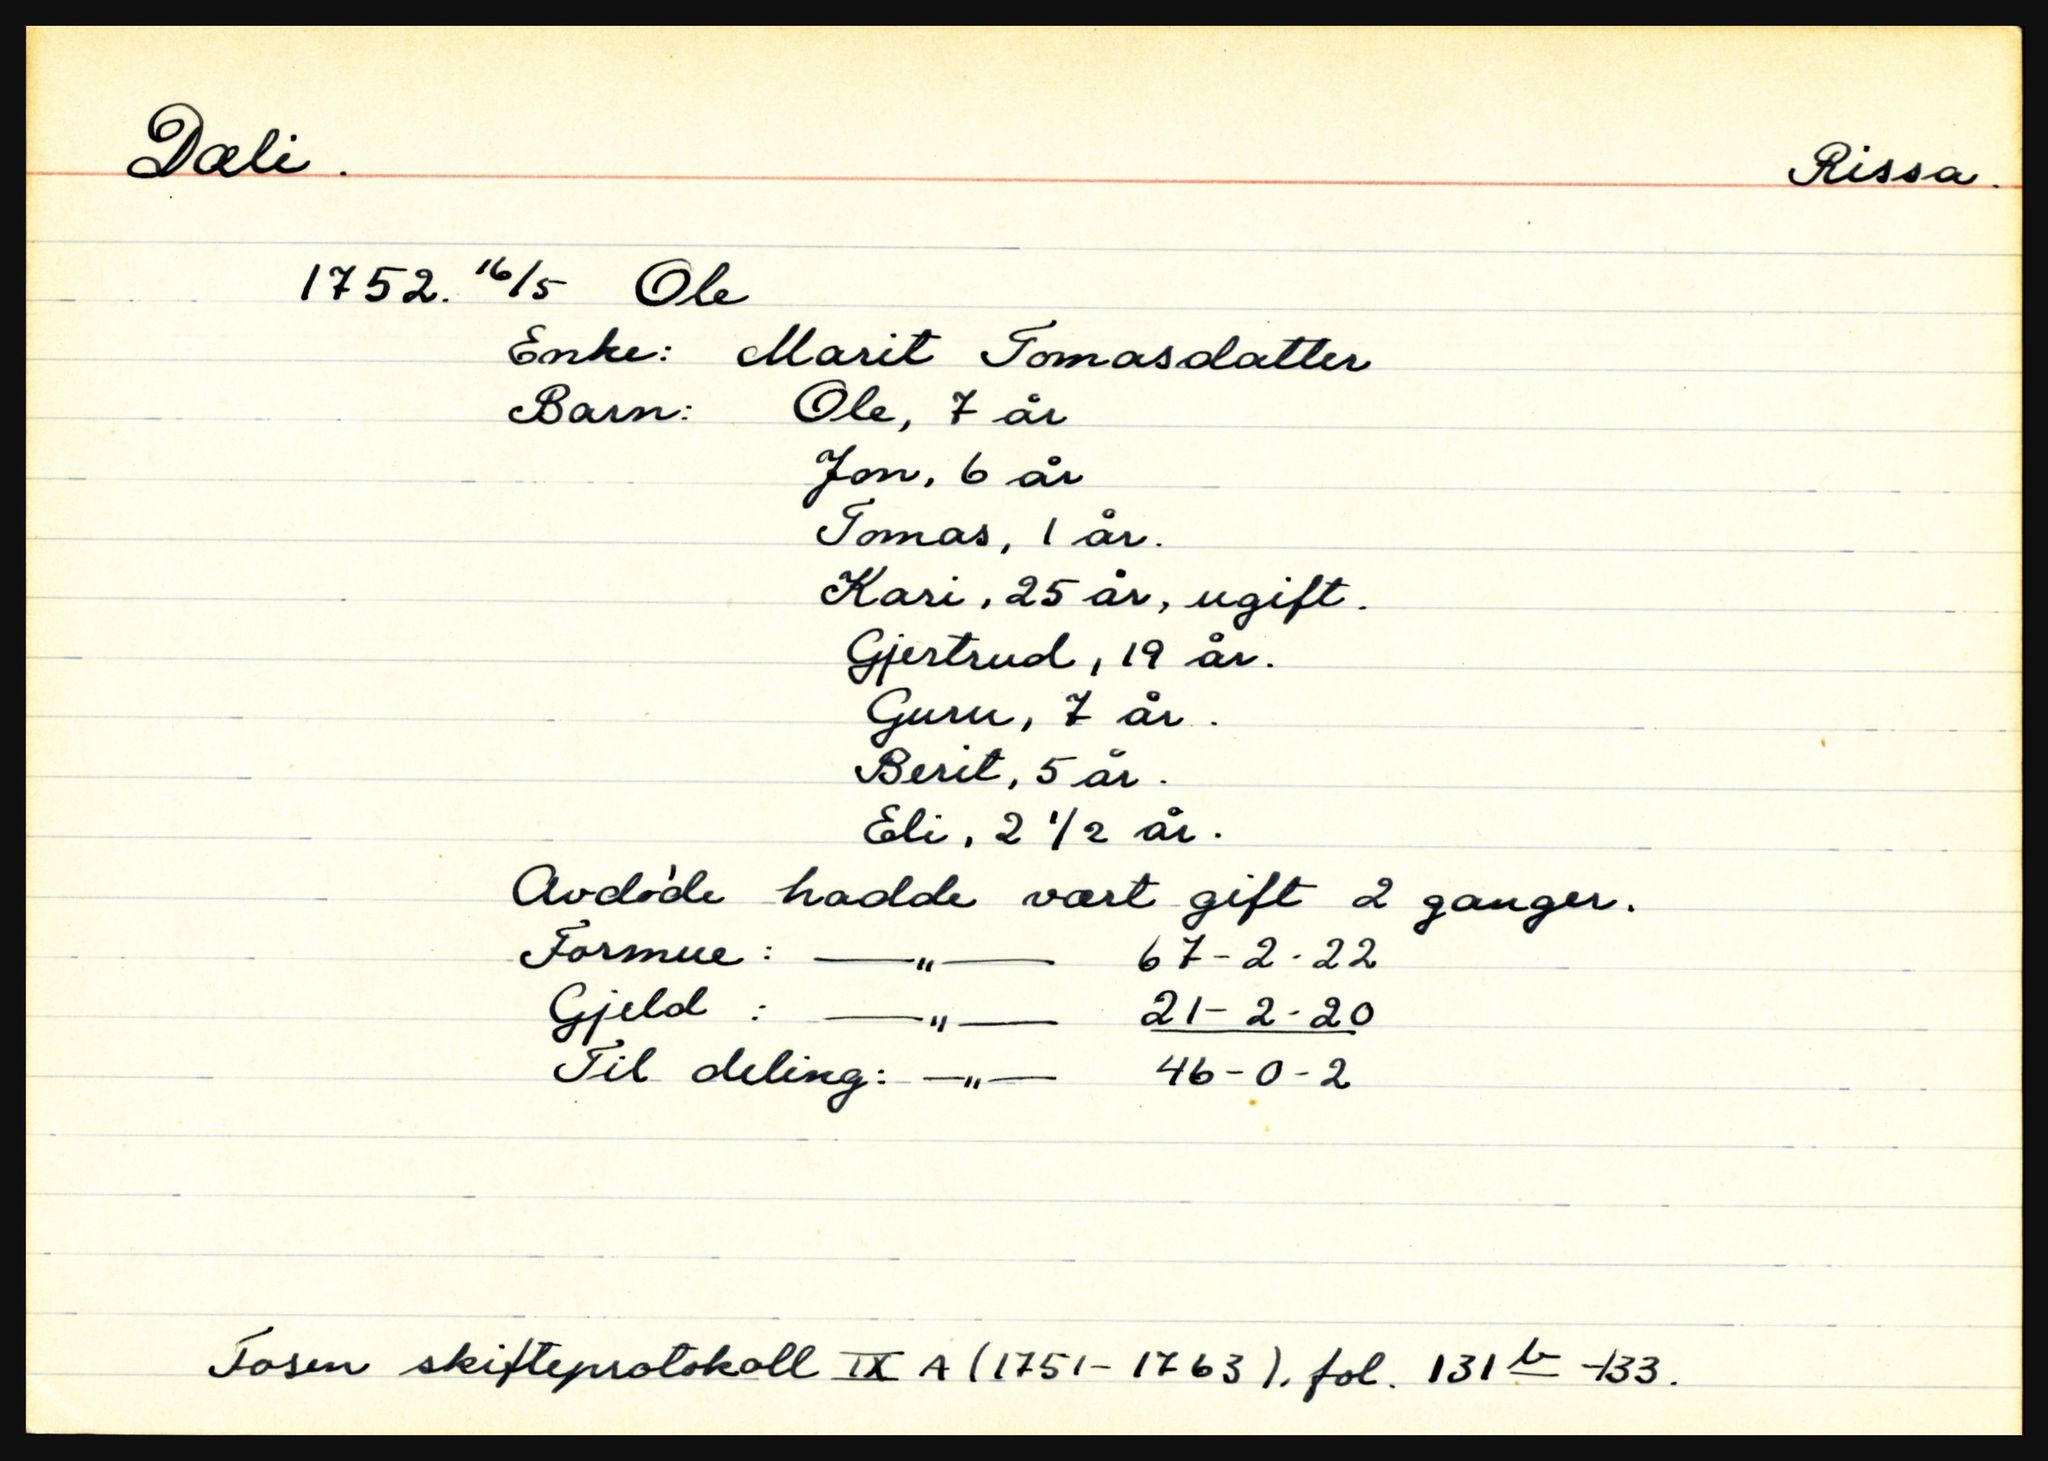 Dæli. Rissa.
1752. 16/5 Ole
Enke: Marit Tomasdatter
Barn: Ole, 7 år
Jon, 6 år
Tomas, 1 år.
Kari, 25 år, ugift.
Gjertrud, 19 år.
Guru, 7 år.
Berit, 5 år.
Eli, 2 1/2 år.
Avdøde hadde vært gift 2 ganger.
Formue: —"— 67-2-22
Gjeld : —"— 21-2-20
Til deling: —"— 46-0-2
Fosen skifteprotokoll IX A (1751-1763), fol. 131b-133.